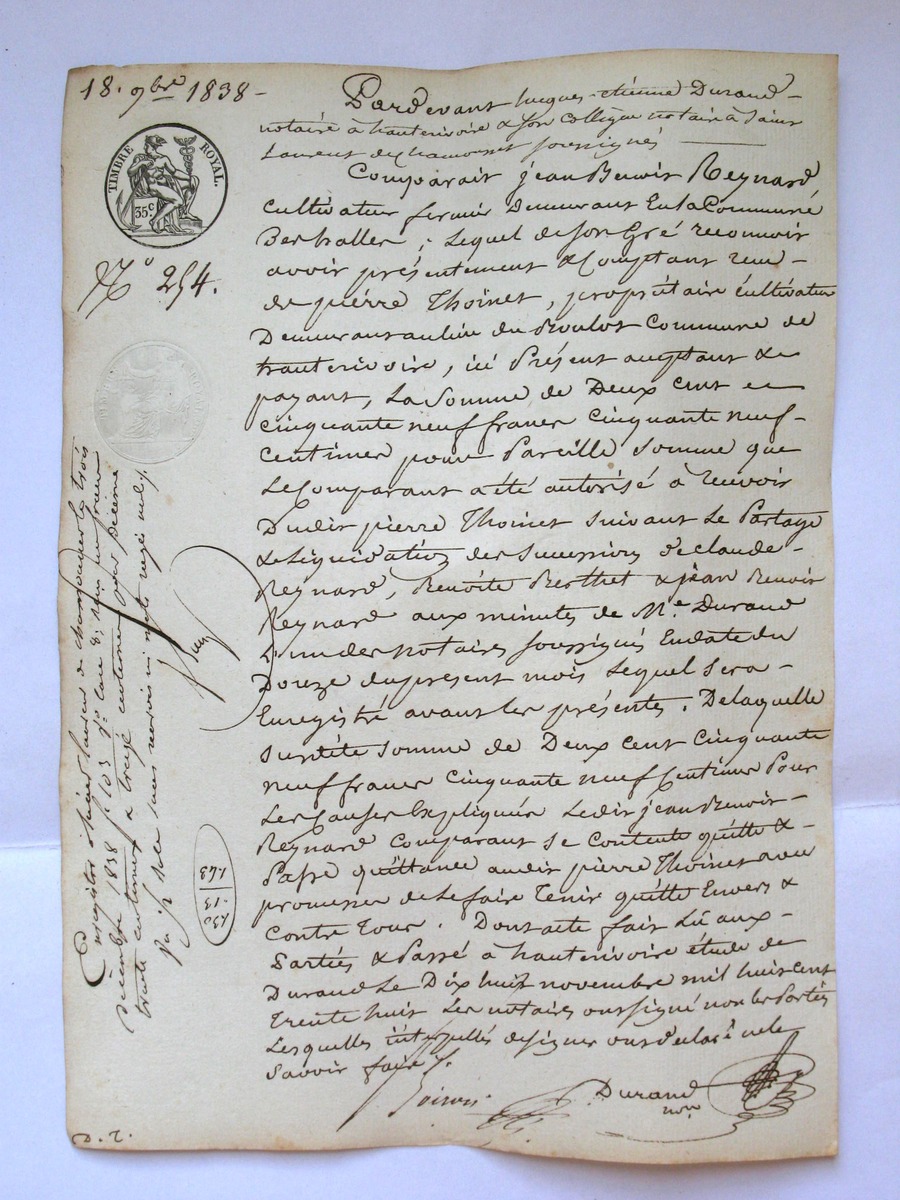 18. 9bre 1838 -
TIMBRE ROYAL.
35 c.
N° 254.
Pardevant Jacques-étienne Durand-
notaire à hauterivoire & son collègue notaire à Saint
Laurent de chamousset soussignés
Comparait jean Benoit Reynard
cultivateur fermier Demeurant En la Commune
, Lequel de son Gré reconnoit
avoir présentement & Comptant recu-
de pierre Thoinet, propriétaire cultivateur
Demeurant au lieu du Boulot Commune de
hauterivoire, ici Présent acceptant &
payant, La Somme de Deux cent
cinquante neuf francs cinquante neuf-
centimes pour Pareille Somme que
Le Comparant a été autorisé à recevoir
Dudit pierre Thoinet suivant Le Partage
& Liquidation des Successions De claude-
Reynard, Benoite Berthet & jean Benoit
Reynard aux minutes de Me. Durand
L'un des notaires soussignés En date du
Douze du présent mois Lequel Sera-
Enregistré avant Les présentes. De laquelle
susdite Somme de Deux cent Cinquante
neuf francs cinquante neuf Centimes Pour
Les Causes Expliquées Ledit jean Benoit-
Reynard Comparant se Contente quitte &
Passe quittance audit pierre Thoinet avec
promesse de Le faire Tenir quitte Envers &
Contre Tous. Dont acte fait Lu aux-
Parties & Passé à hauterivoire étude de
Durand Le Dix huit novembre mil huit cent
Trente huit Les notaires ont signé non Les Parties
Lesquelles interpellés de signer ont déclaré ne le
Savoir faire
Durand
nore
Enregistré à Saint Laurent de chamousset le trois
Décembre 1838 f° 103 Reçu un franc
trente centimes & treize centimes pour décime
1,30
,13
1,43
D. T.